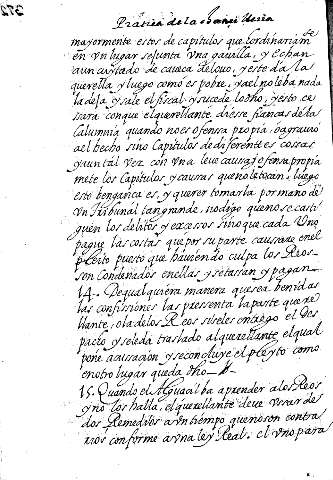 372
Prática de la chançilleria
mayormente estos de capitulos que hordinariamte
en vn lugar se junta vna gavilla, y echan
a un cuytado de caveça de louo, y esto da la
querella y luego como es pobre, ya el no le ba nada
la dexa y sale el fiscal y sucede lo dho, y esto ce
sara conque el querellante, diesse fianças de la
Calumnia quando no es ofensa propria, o agrauio
a el hecho sino Capitulos de diferentes cossas
y aun tal vez con vna leue causa y ofensa propria
mete los Capitulos y causas que no le tocan, luego
esto bengança es, y querer tomarla por mano de
vn tribunal tan grande, no digo que no se casti
guen los delitos y excesos sino que cada Vno
pague las costas que por su parte causare en el
pleito puesto que haviendo culpa los Reos
son Condenados en ellas y se tasan y pagan
14. De qualquiera manera que sea benidas
las confissiones las pressenta la parte quere
llante, o la de los Reos si se les entrego el des
pacho y se le da traslado al querellante el qual
pone acusacion y se concluye el pleyto como
en otro lugar queda dho
15. Quando el Alguaçil ba a prender a los Reos
y no los halla, el querellante deve vssar de
dos Remedios a vn tiempo que no son contra
rios conforme a vna ley Real. el vno para